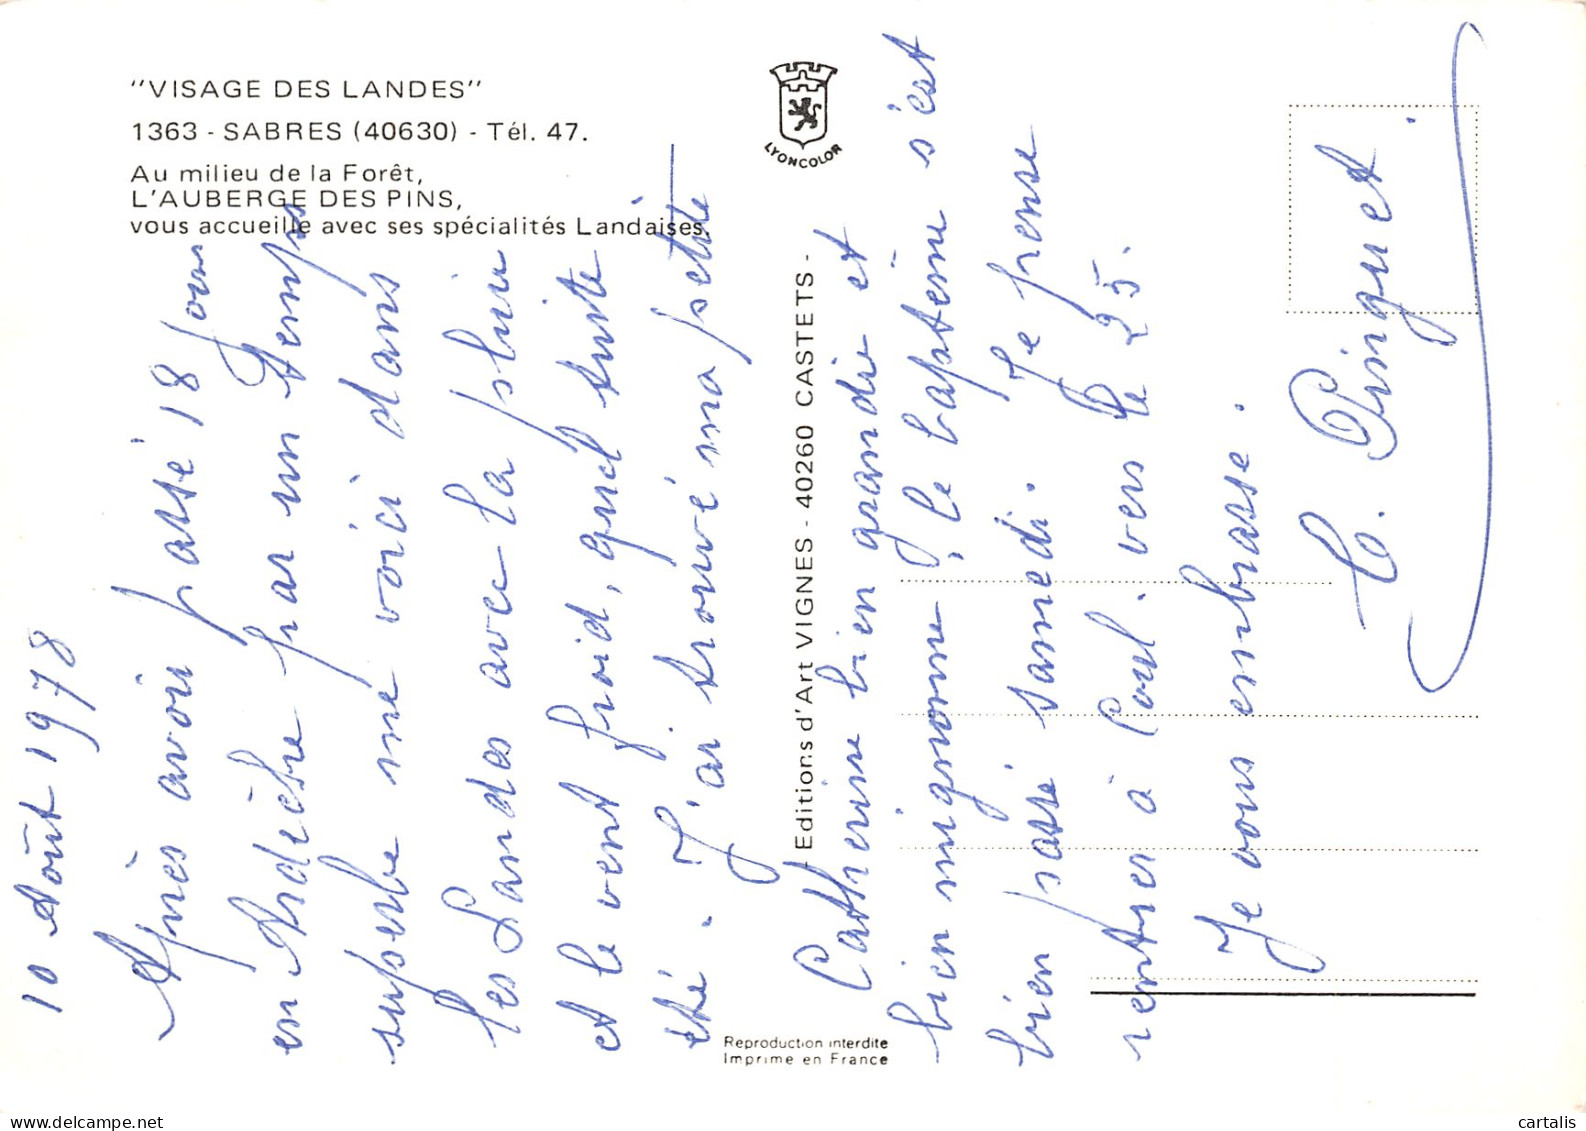 "VISAGE DES LANDES"
1363 - SABRES (40630) - Tél. 47.
Au milieu de la Forêt,
L'AUBERGE DES PINS,
vous accueille avec ses spécialités Landaises.
LYONCOLOR
- Editions d'Art VIGNES - 40260 CASTETS -
Reproduction interdite
Imprime en France
10 Août 1978
Après avoir passé 18 jours
en Ardèche par un temps
superbe me voici dans
les Landes avec la pluie
et le vent froid, quel triste
été. J'ai trouvé ma petite
Catherine bien grandie et
bien mignonne, le baptême s'est
bien passé samedi. Je pense
rentrer à Coul. vers le 25.
Je vous embrasse.
C. Pinguet.
www.delcampe.net
cartalis